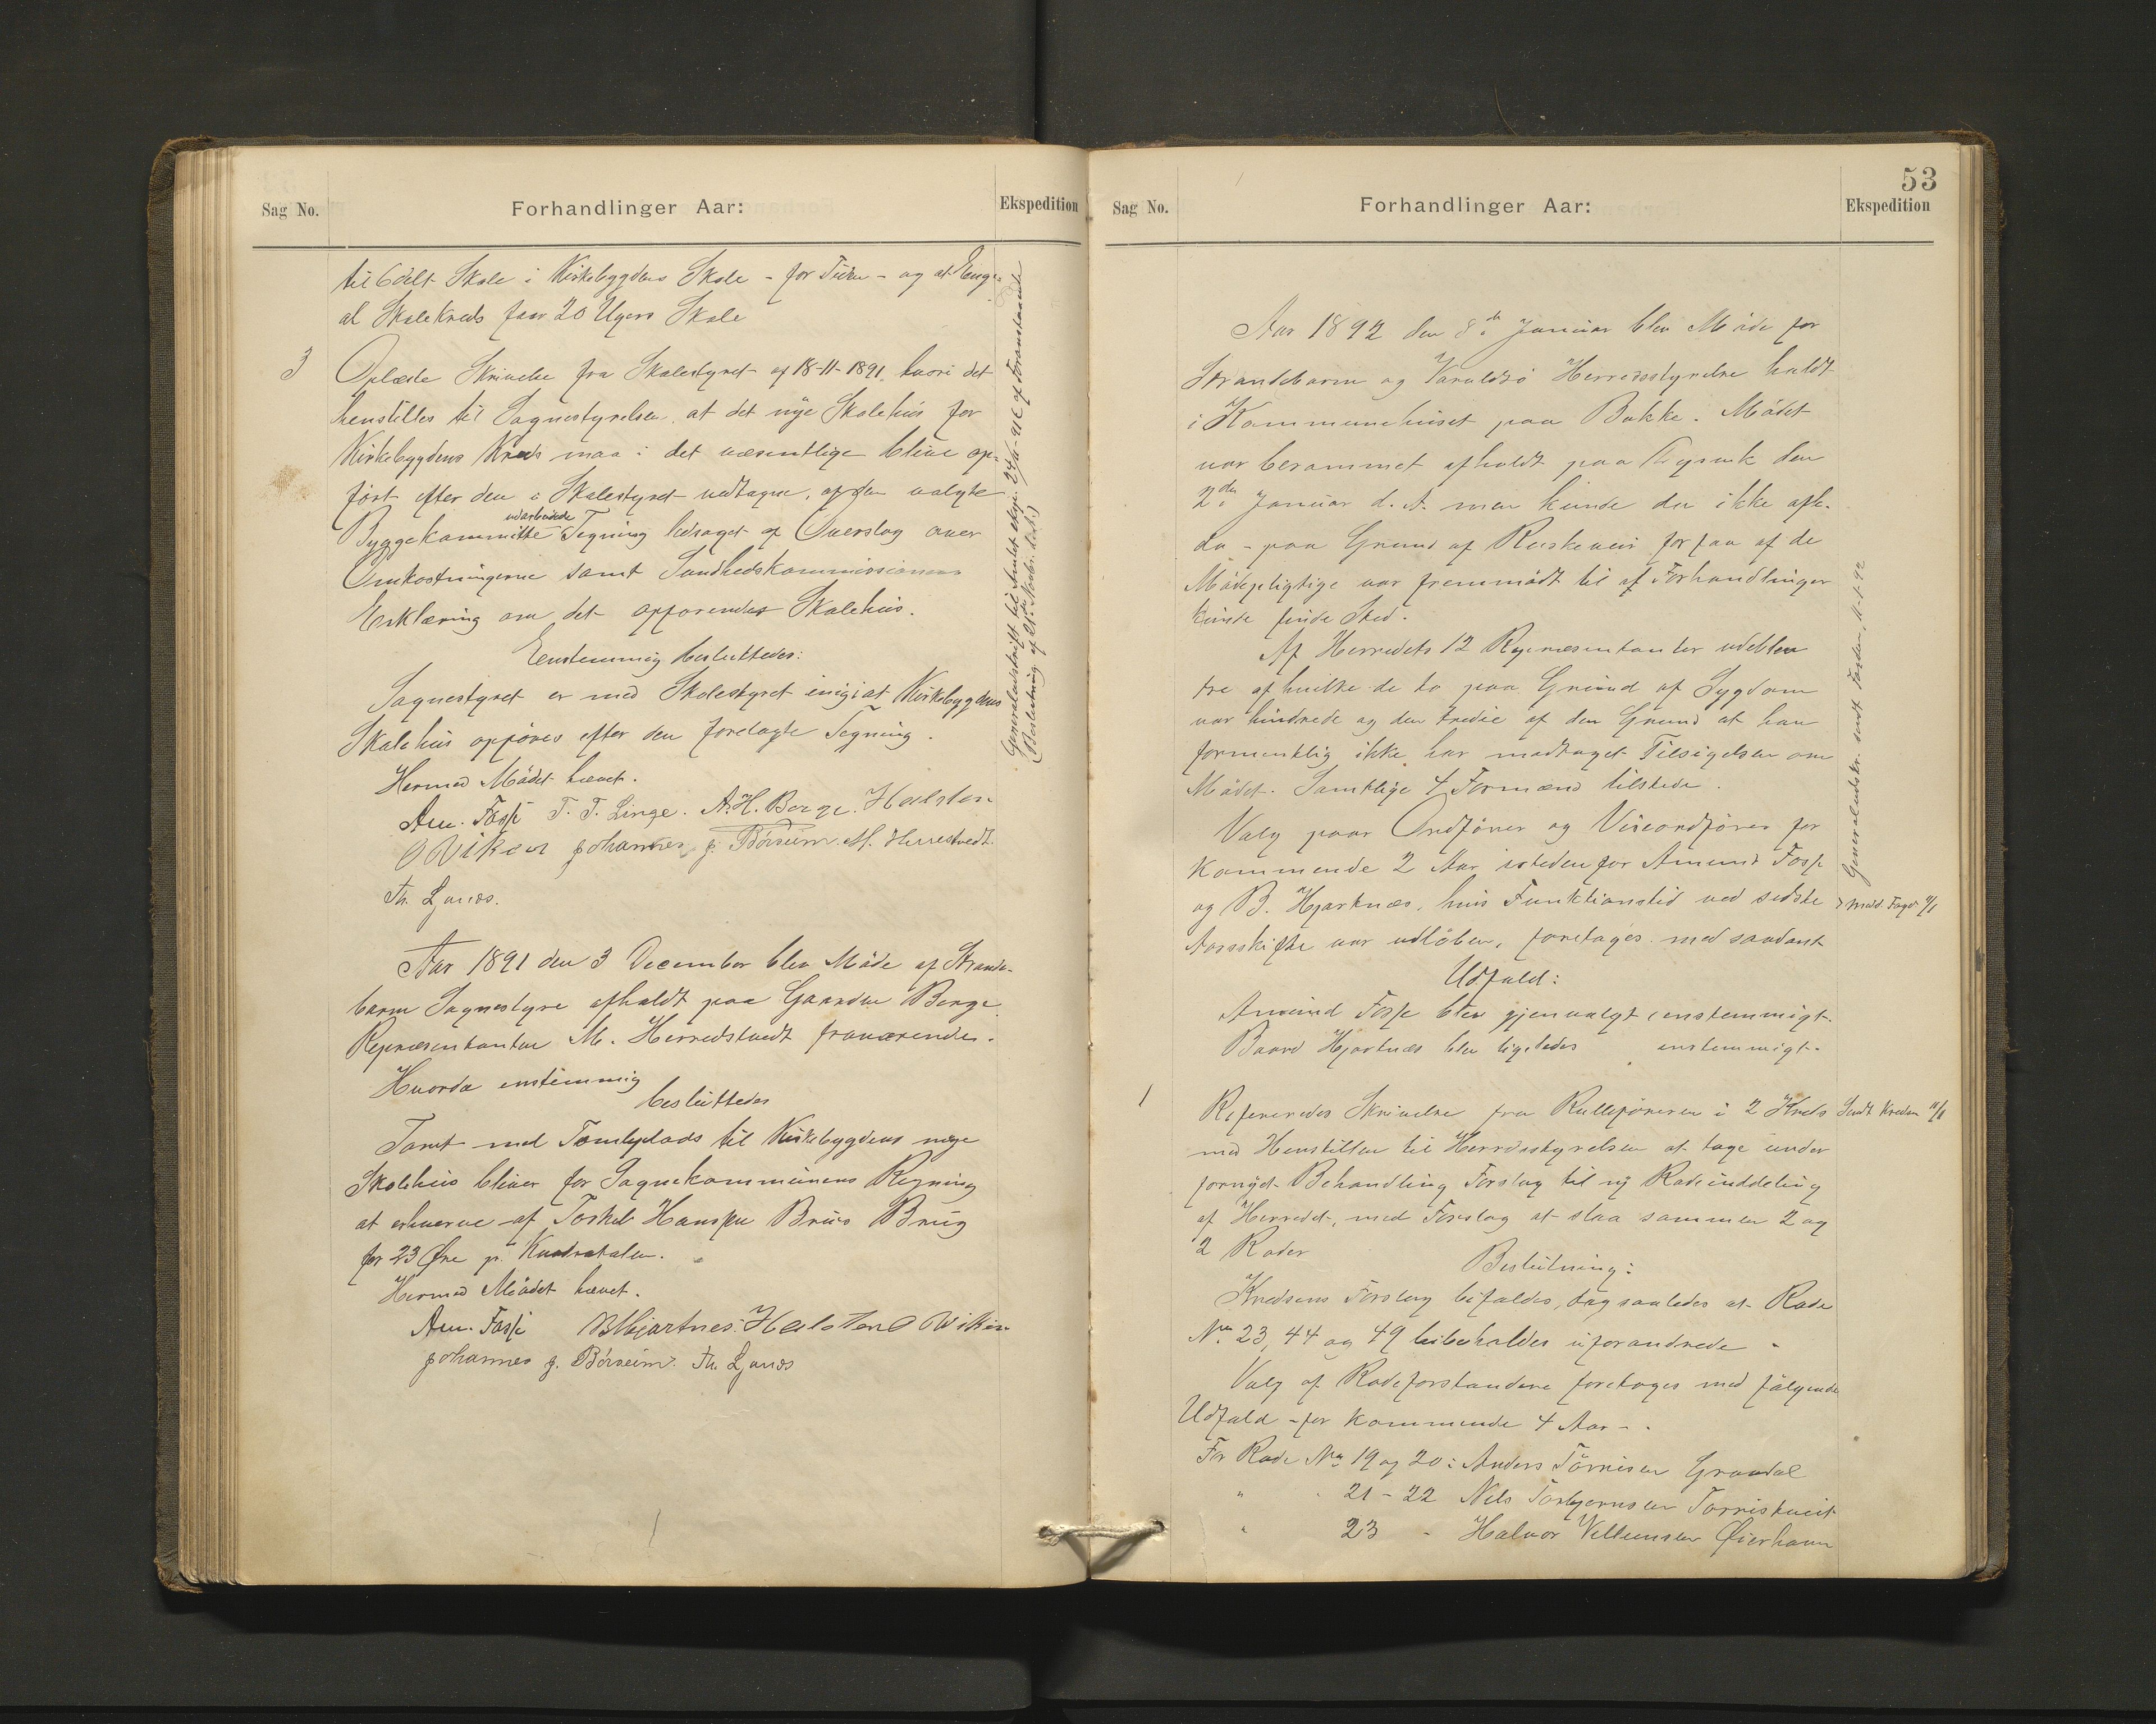 Sag No.
Forhandlinger Aar:
Ekspedition
til 6 delt Skole i Kirkebygdens Skole - for Tiden - og at Enge-
al Skolekreds faar 20 Ugers Skole
3
Oplæste Skrivelse fra Skolestyret af 18-11-1891, hvori det
henstilles til Sognestyrelsen, at det nye Skolehus for
Kirkebygdens Kreds maa i det væsentlige blive op-
ført efter den i Skolestyret vedtagne, af den valgte
Byggekommitte udarbeidede Tegning ledsaget af Overslag over
Omkostningerne samt Sundhedskommissionens
Erklæring om det opførendes Skolehus.
Eenstemmig besluttedes:
Sognestyret er med Skolestyret enig i at Kirkebygdens
Skolehus opføres efter den forelagte Tegning.
Hermed Mødet hævet.
Am. Fosse T. T. Linge. A. H. Berge. Halsten
O Viken Johannes J. Børseim. M. Herrestvedt.
Th. Ljones.
Generaludskrift til Amtet exp. 24/11-91 af Foranstaaende
(Beslutning af 21de Novbr. 1891.)
Aar 1891 den 3 December blev Møde af Strande-
barm Sognestyre afholdt paa Gaarden Berge.
Repræsentanten M. Herredstvedt fraværende.
Hvorda enstemmig
besluttedes
Tomt med Tomteplads til Kirkebygdens nye
Skolehus bliver for Sognekommunens Regning
at erhverve af Torkel Hansen Bruis Brug
for 23 Øre pr. Kvadratalen.
Hermed Mødet hævet.
Am. Fosse B Hjartnes. Halsten O Viken
Johannes J. Børseim. Th. Ljones
53
Sag No.
Forhandlinger Aar:
Ekspedition
Aar 1892 den 8de Januar blev Møde for
Strandebarm og Varaldsø Herredsstyrelse holdt
i Kommunehuset paa Bakke. Mødet
var berammet afholdt paa Tysnuk den
2den Januar d. A. men kunde da ikke afh.
da - paa Grund af Ruskeveir for faa af de
Mødepligtige var fremmødt til at Forhandlinger
kunde finde Sted.
Af Herredets 12 Repræsentanter udeblev
tre af hvilke de to paa Grund af Sygdom
var hindrede og den tredie af den Grund at han
formentlig ikke har modtaget Tilsigelsen om
Mødet. Samtlige 4 Formænd tilstede.
Valg paa Ordfører og Viceordfører for
kommende 2 Aar istedenfor Amund Fosse
og B. Hjartnæs, hvis Funktionstid ved sidste
Aarsskifte var udløben, foretages med saadant
Udfald:
Amund Fosse blev gjenvalgt enstemmigt.
Baard Hjartnæs blev ligeledes enstemmigt.
Generaludskr. sendt Fogden 11-1-92
Meld. Fogd 11/1
1
Refereredes Skrivelse fra Rulleføreren i 2 Kreds
Sendt Kredsen 11/1
med Henstillen til Herredsstyrelsen at tage under
fornyet Behandling Forslag til ny Rodeinddeling
af Herredet, med Forslag at slaa sammen 2 og
2 Roder
Beslutning:
Kredsens Forslag bifaldes, dog saaledes at Rode
No 23, 44 og 49 bibeholdes uforandrede.
Valg af Rodeforstandere foretoges med følgende
Udfald - for kommende 4 Aar -.
For Rode No 19 og 20: Anders Tørrisen Grøndal
" " 21 - 22 Nils Torbjørnsen Tørriskveit
" 23 - Halvor Villumsen Øierhavn